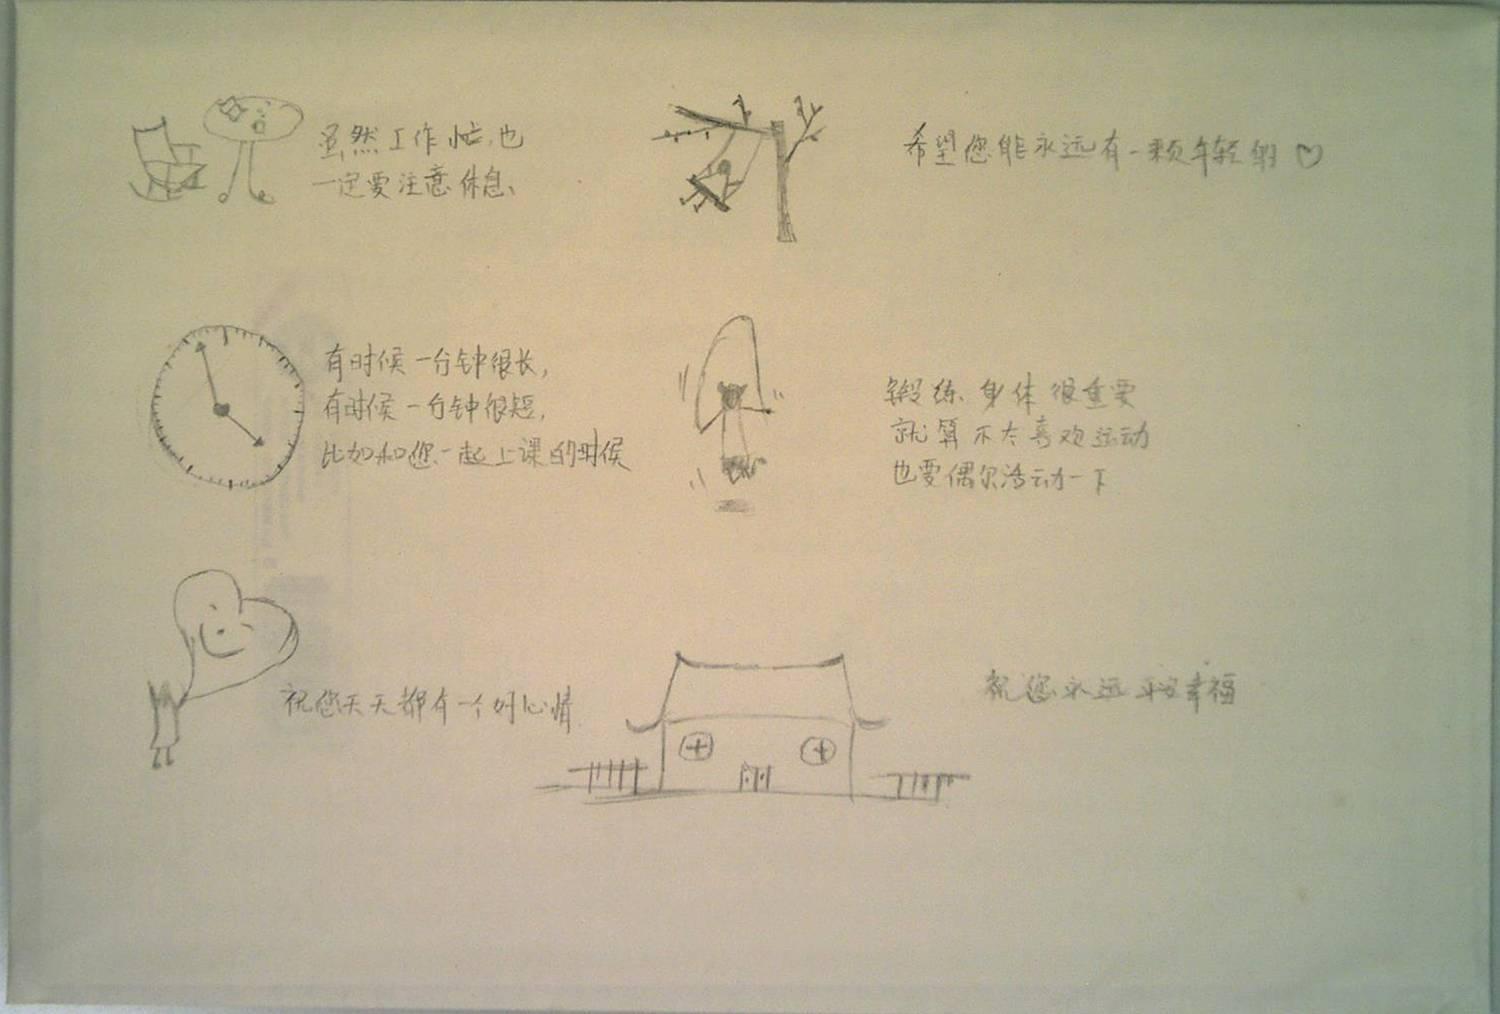 虽然工作忙,也
一定要注意休息、
希望您能永远有一颗年轻的♡
有时候一分钟很长,
有时候一分钟很短,
比如和您一起上课的时候
锻练身体很重要
就算不太喜欢运动
也要偶尔活动一下
祝您天天都有一个好心情
祝您永远平安幸福